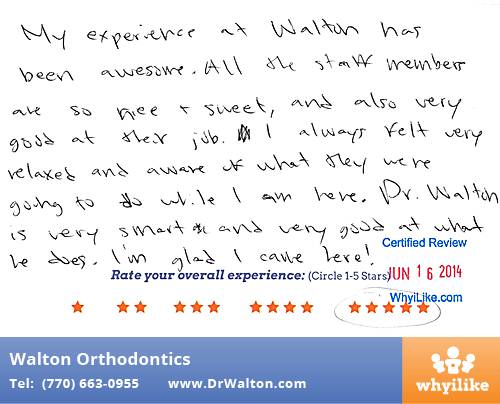 My experience at Walton has
been awesome. All the staff members
are so nice + sweet, and also very
good at their job. I always felt very
relaxed and aware of what they were
going to do while I am here. Dr. Walton
is very smart and very good at what
he does. I'm glad I came here!
Certified Review
Rate your overall experience: (Circle 1-5 Stars)
JUN 16 2014
WhyiLike.com
Walton Orthodontics
Tel: (770) 663-0955 www.DrWalton.com
whyilike